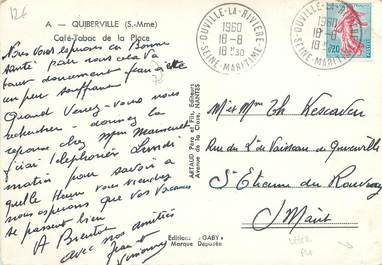 12€
A — QUIBERVILLE (S.-Mme)
Café-Tabac de la Place
Nous vous espérons en Bonne
santé pour nous cela va
tout doucement
un peu souffrant
Quand Venez-vous nous
rechercher - donnez la
réponse chez Mme
j'irai téléphoner Lundi
matin pour savoir a
quelle Heure vous viendrez
nous espérons que vos Vacances
se passent bien
A Bientôt
avec nos amitiés
Jean et
Simonne
Editions "GABY"
Marque Déposée
ARTAUD Père et Fils, Editeurs
Avenue de la Close, NANTES
OUVILLE-LA-RIVIÈRE
1960
18-8
18 H 30
SEINE-MARITIME
OUVILLE-LA-RIVIÈRE
1960
18-8
SEINE-MARITIME
0,20
Mr et Mme Th
Rue du L' de Vaisseau de
St Etienne du Rouvray
S/Mme